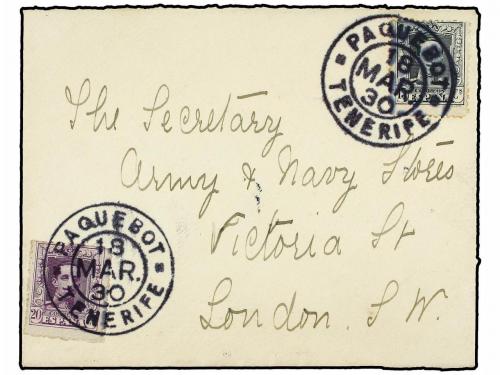 PAQUEBOT
18
MAR.
30
TENERIFE
The Secretary
Army & Navy Stores
Victoria St
London. S.W.
PAQUEBOT
18
MAR.
30
TENERIFE
20 ESPAÑA